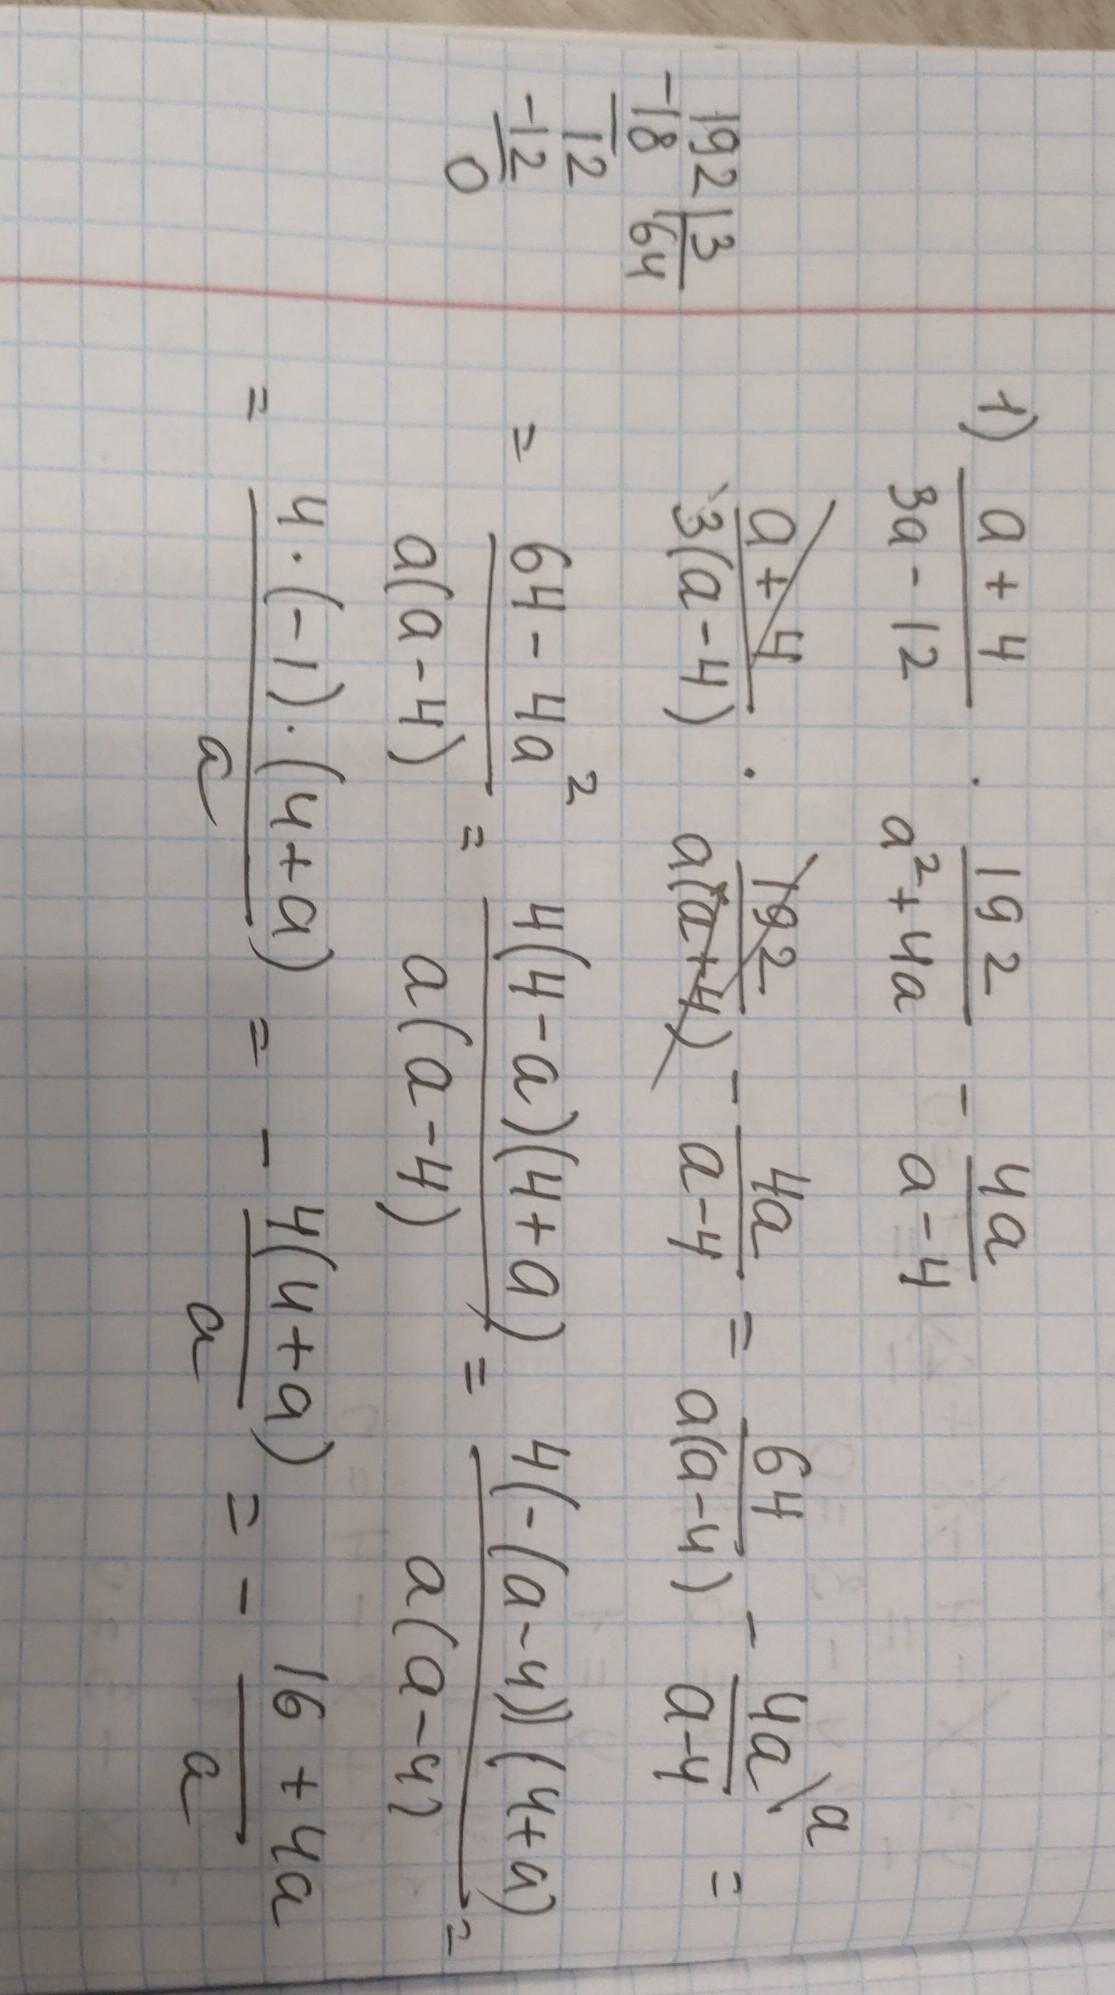 1) (a+4)/(3a-12) · 192/(a²+4a) - 4a/(a-4)
(a+4)/(3(a-4)) · 192/(a(a+4)) - 4a/(a-4) = 64/(a(a-4)) - 4a\a/(a-4) =
= (64-4a²)/(a(a-4)) = 4(4-a)(4+a)/(a(a-4)) = 4(-(a-4))(4+a)/(a(a-4)) =
= 4·(-1)·(4+a)/a = - 4(4+a)/a = - (16+4a)/a
192|3
-18 64
12
-12
0